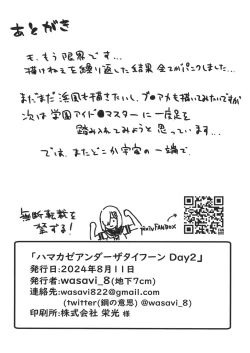 あとがき
も、もう限界です…
描けねぇを繰り返した結果全てがパンクしました…
まだまだ浜風も描きたいし、ブ●アカも描いてみたいですが
次は学園アイド●マスターに一度足を
踏み入れてみようと思っています…
では、またどこか宇宙の一端で
無断転載を
禁ずる!
FANBOX
「ハマカゼアンダーザタイフーン Day2」
発行日:2024年8月11日
発行者:wasavi_8(地下7cm)
連絡先:wasavi822@gmail.com
(twitter(鋼の意思) @wasavi_8)
印刷所:株式会社 栄光 様